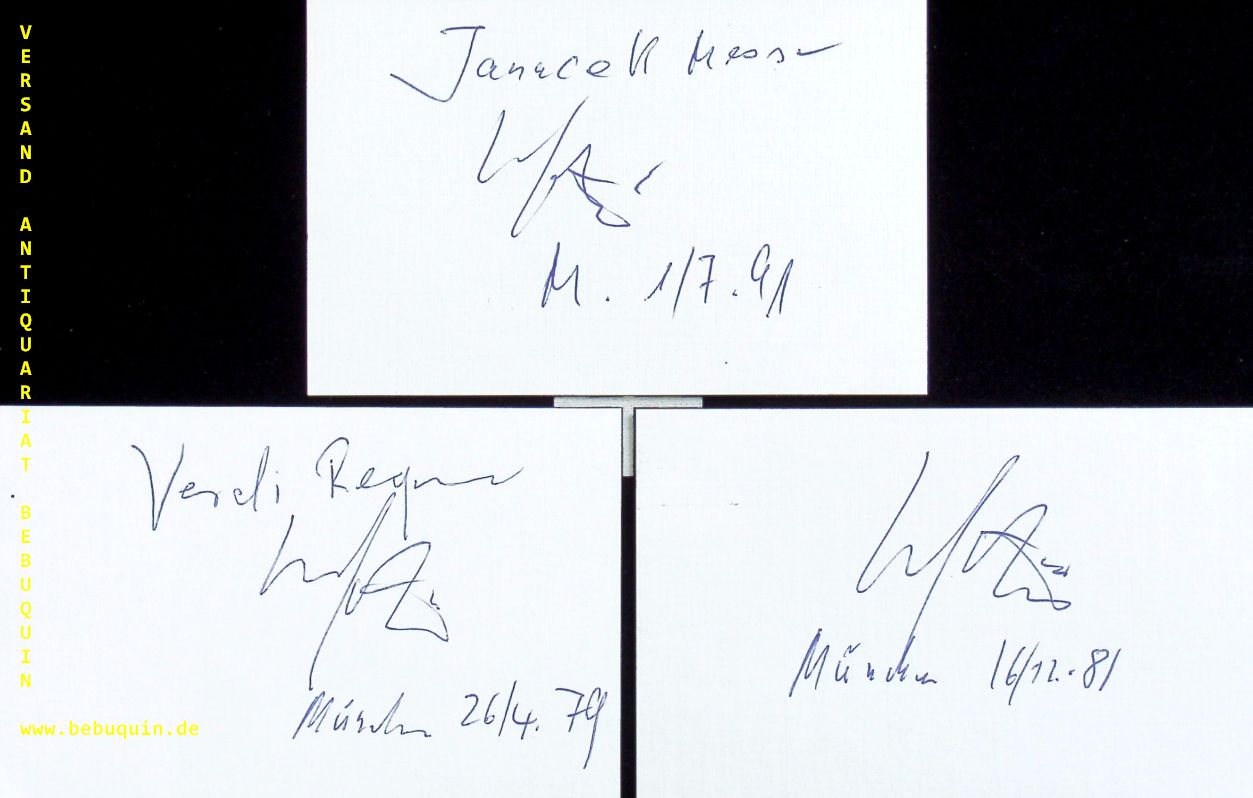 VERSAND ANTIQUARIAT BEBUQUIN
www.bebuquin.de
Janacek Messe
M. 1/7.91
Verdi Requiem
München 26/4.79
München 16/12.81